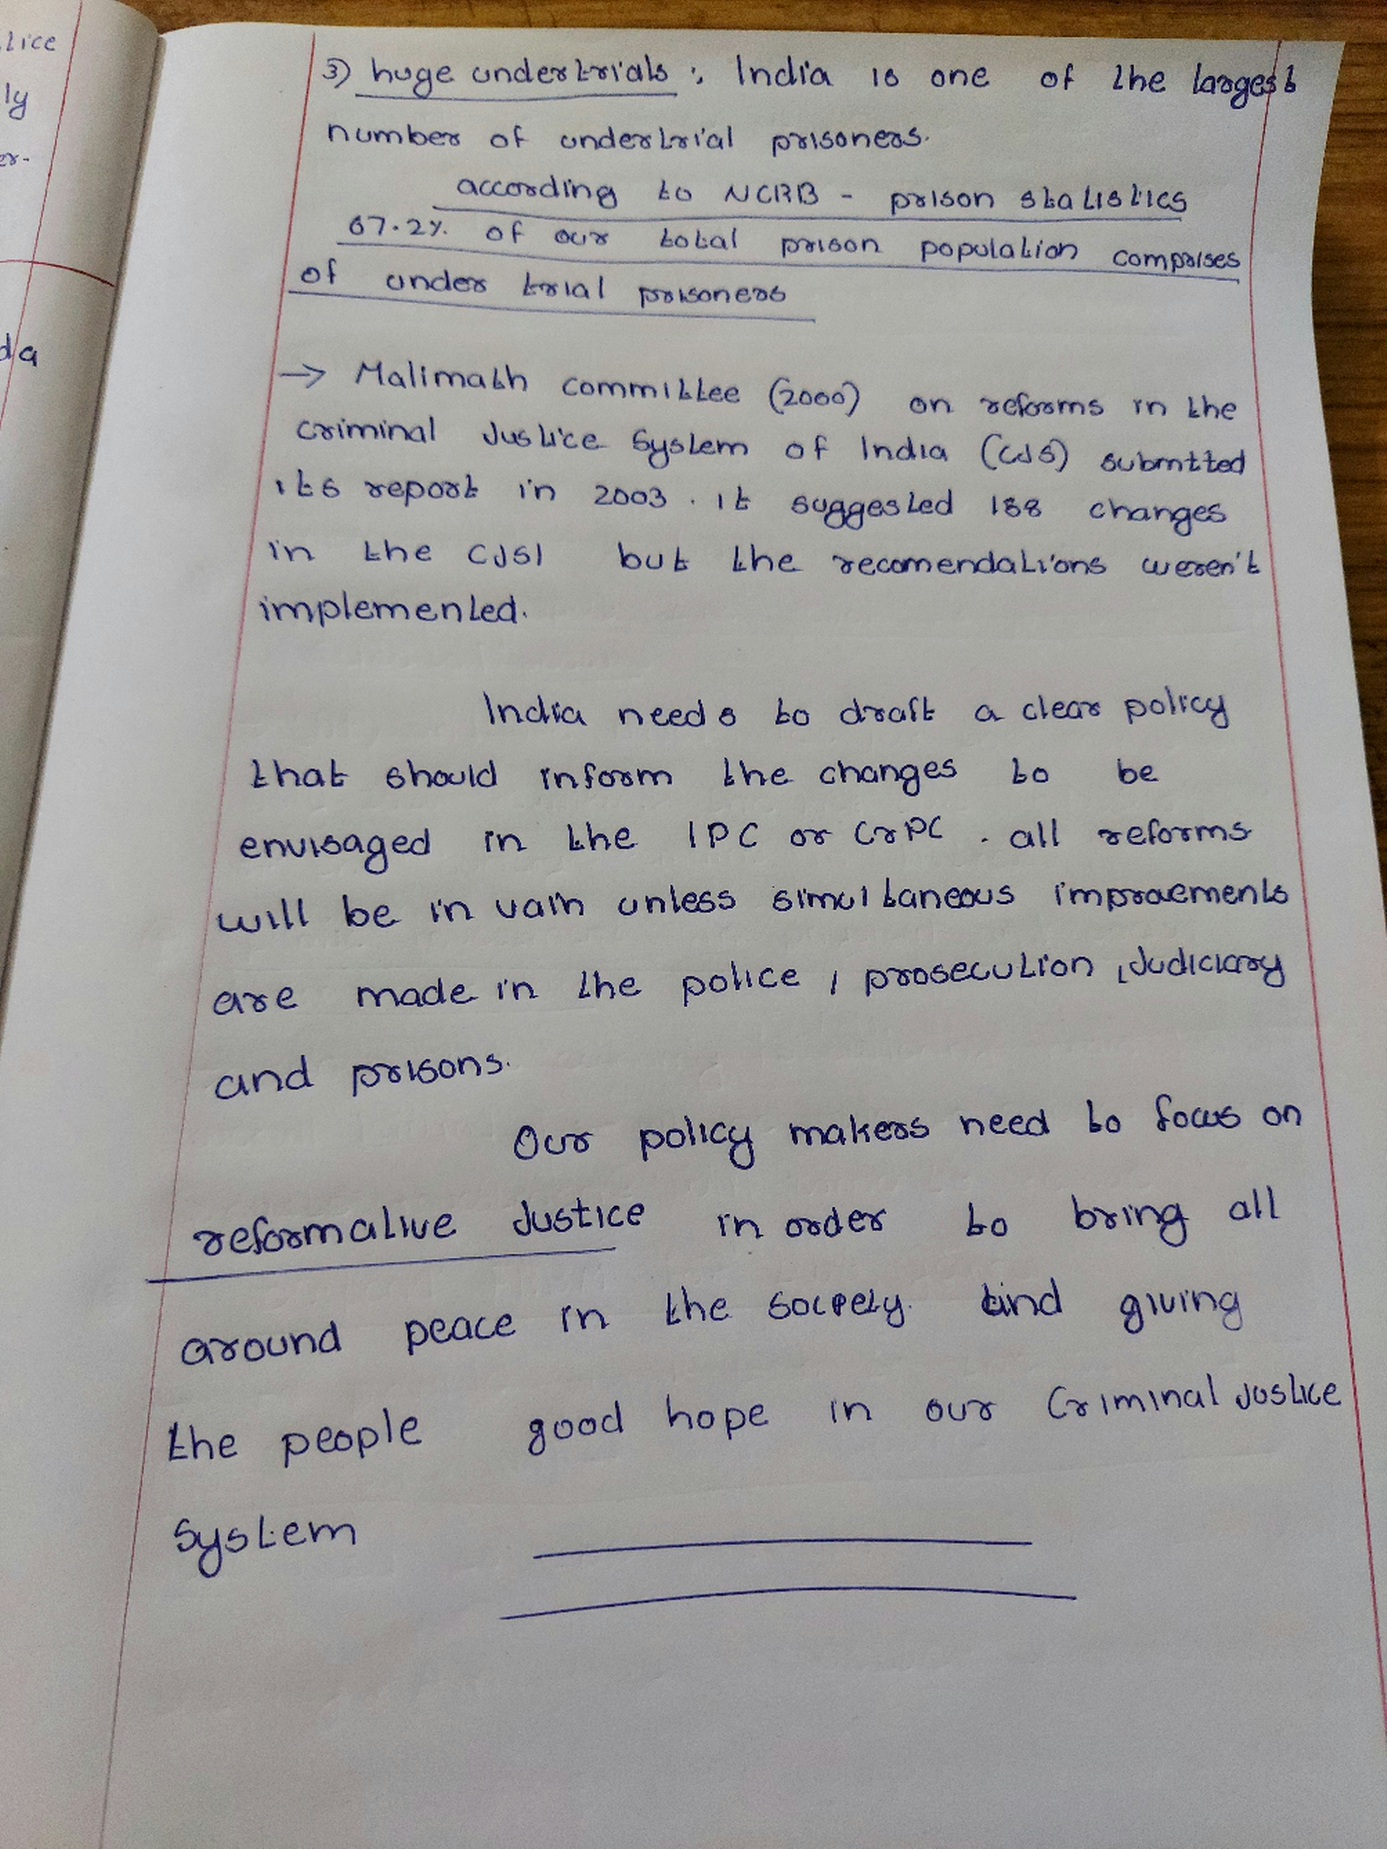 lice
ly
er-
da
3) huge undertrials : India is one of the largest
number of undertrial prisoners.
according to NCRB - prison statistics
67.2% of our total prison population comprises
of under trial prisoners
→ Malimath committee (2000) on reforms in the
criminal Justice System of India (CJS) submitted
its report in 2003. it suggested 158 changes
in the CJSI but the recomendations weren't
implemented.
India needs to draft a clear policy
that should inform the changes to be
envisaged in the IPC or CrPC. all reforms
will be in vain unless simultaneous improements
are made in the police, prosecution, Judiciary
and prisons.
Our policy makers need to focus on
reformative Justice in order to bring all
around peace in the society. and giving
the people good hope in our Criminal Justice
System